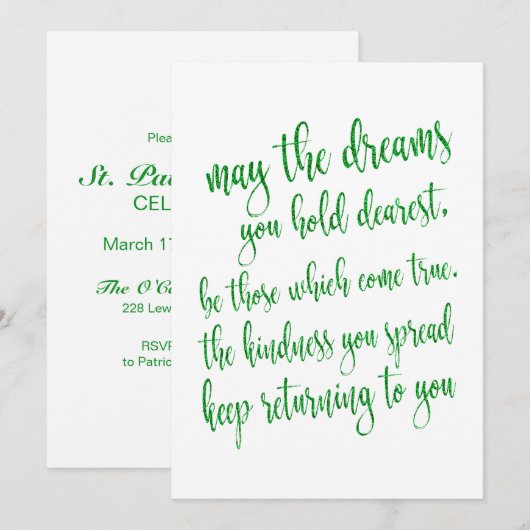 Please
St. Pa
CEL
March 17
The O'C
228 Lew
RSV
to Patric
may the dreams
you hold dearest,
be those which come true.
the kindness you spread
keep returning to you